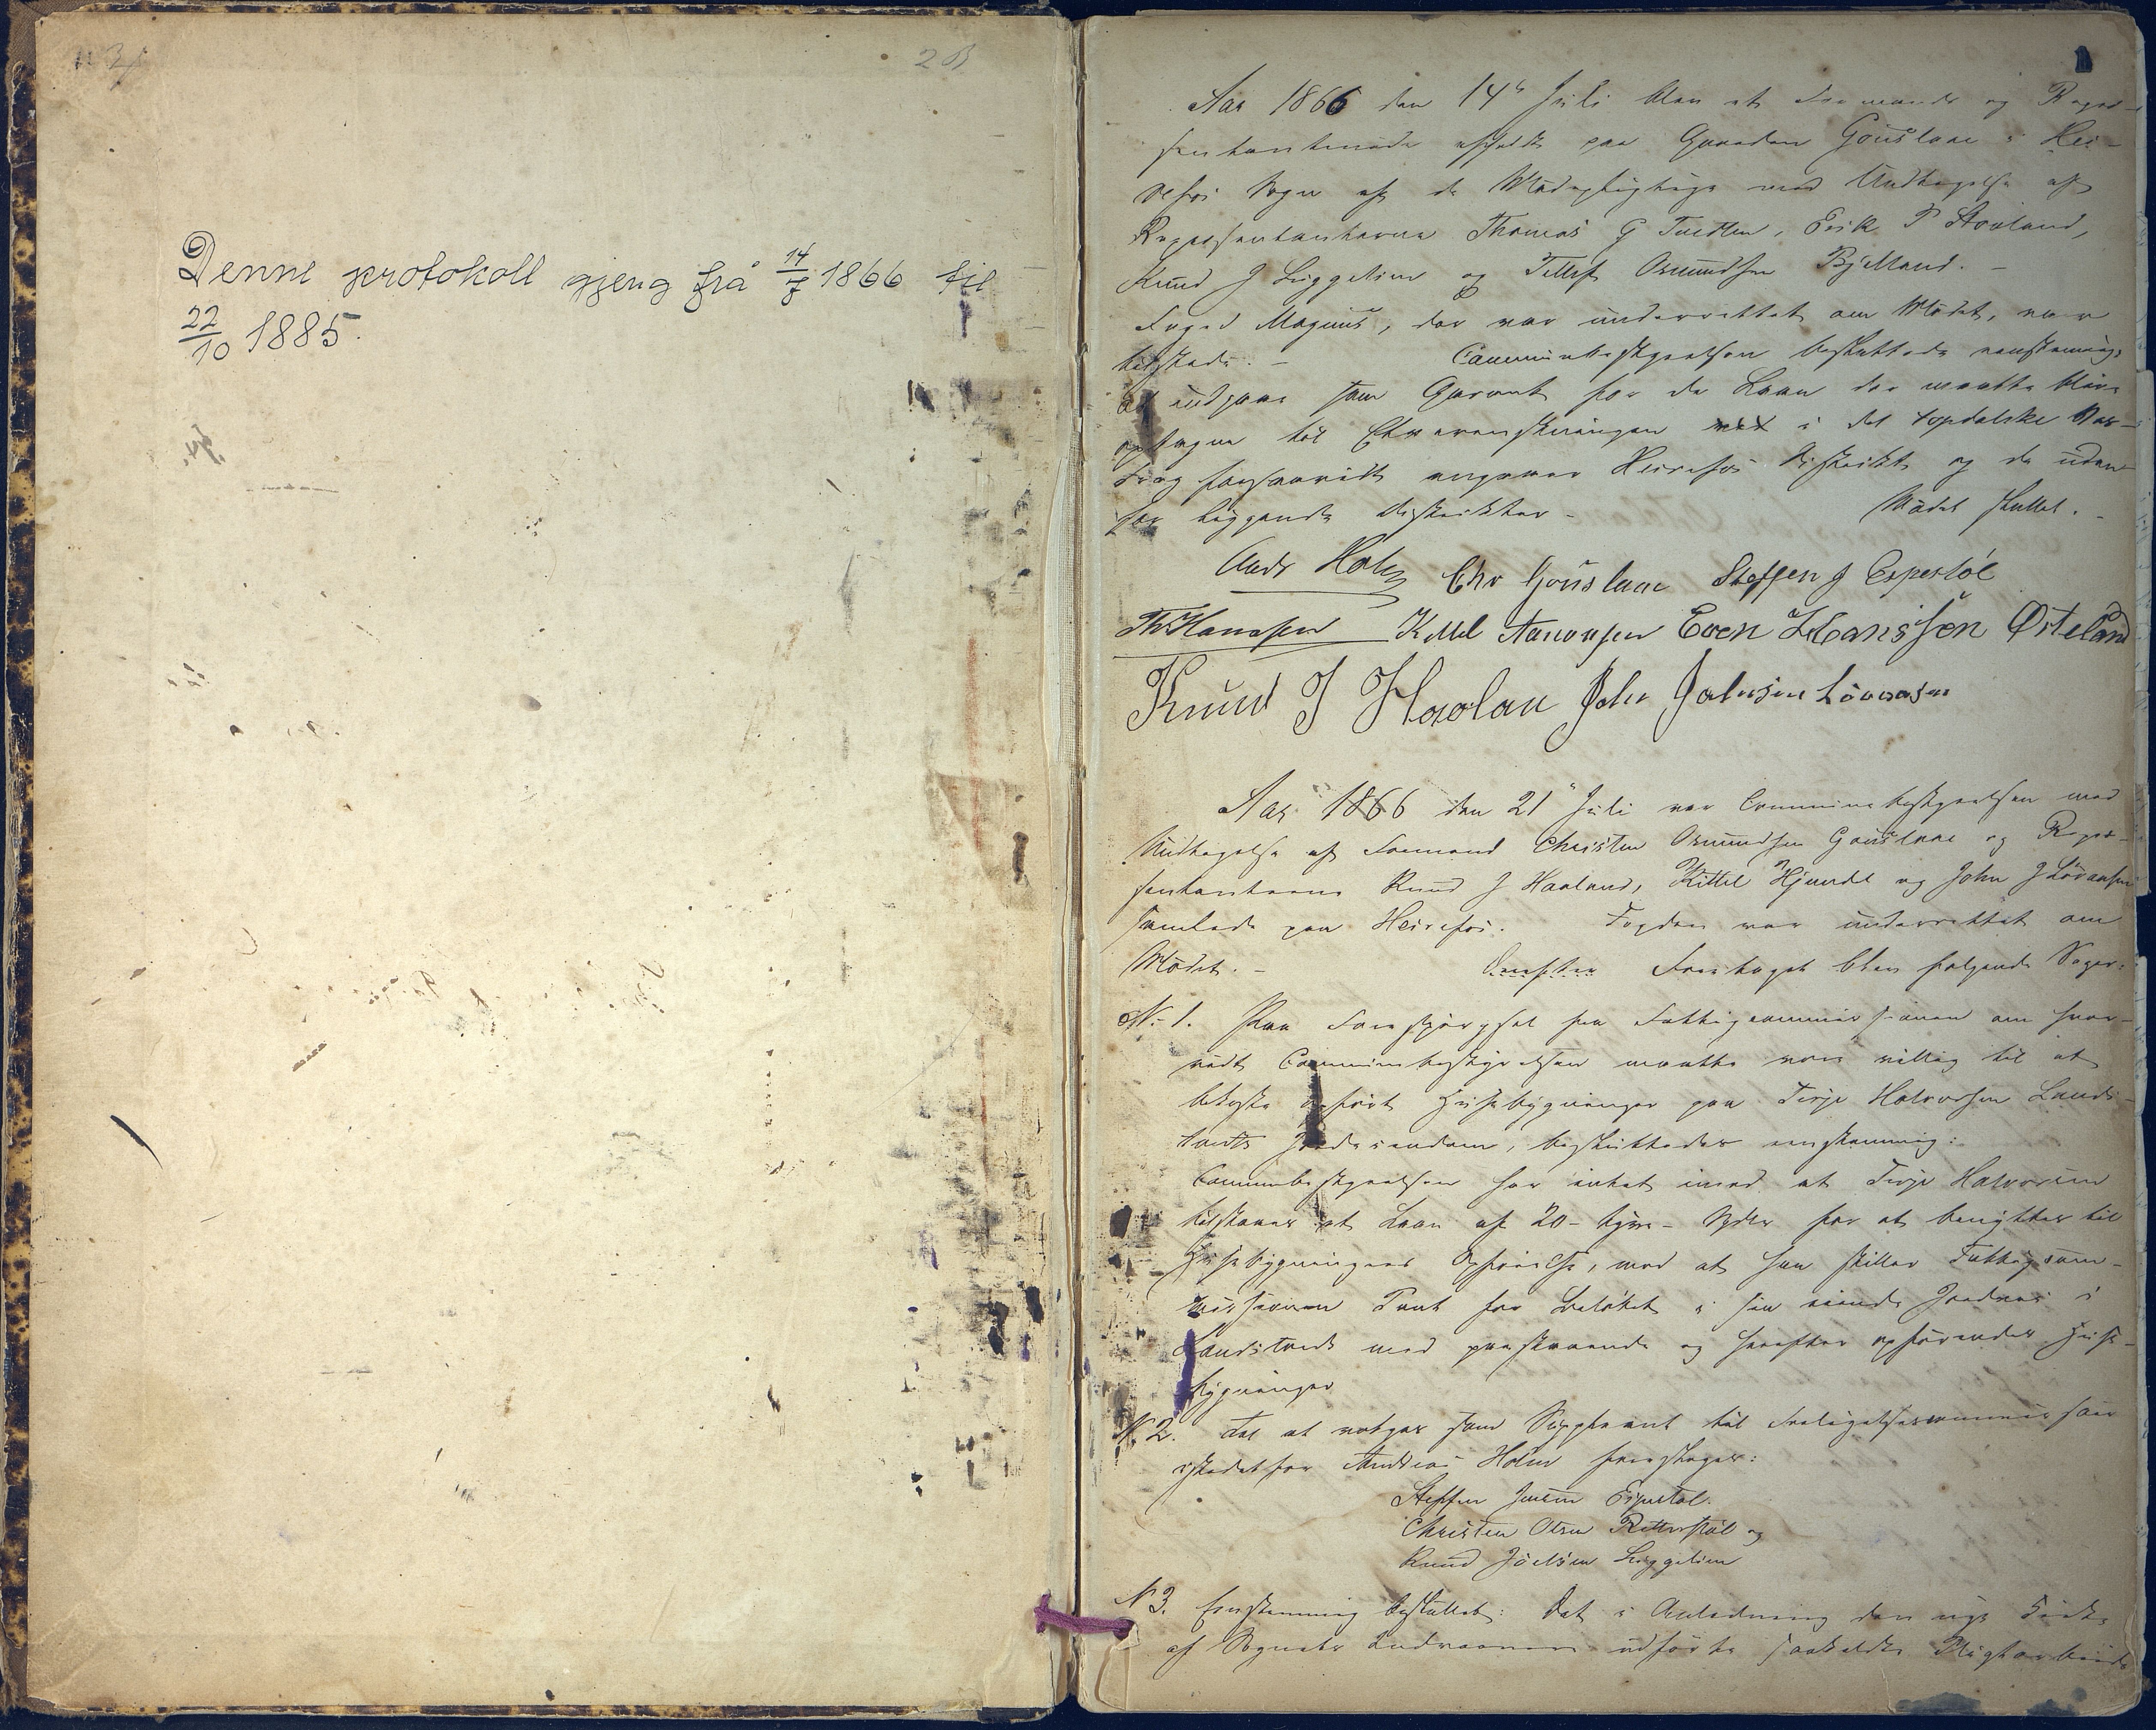 Denne protokoll gjeng frå 14/7 1866 til
22/10 1885.
Aar 1866 den 14de Juli blev et Formands og Repræ-
sentantmøde afholdt paa Gaarden Gouslaae i Hei-
refos Sogn af de Mødepligtige med Undtagelse af
Repræsentanterne Thomas G Tveiten, Erik P Aavland,
Knud J Liggelien og Tellef Osmundsen Bjelland. -
Foged Magnus, der var underrettet om Mødet, var
tilstede. - Communebestyrelsen besluttede eenstemmig
at indgaae som Garant for de Laan der maatte blive
optagne til Elverensningen i det topdalske Vas-
drag forsaavidt angaaer Heirefos District og de uden-
for liggende Districter - Mødet sluttet. -
Ands Holm Chr Gouslaae Steffen J Espestøl
Th Hansen Kittel Aanonsen Even Hansssen Østeland
Knud J Havlan John Johnsen Løvaasen
Aar 1866 den 21 Juli var Communebestyrelsen med
Undtagelse af Formand Christen Osmundsen Gouslaae og Repræ-
sentanterne Knud J Haaland, Kittel Hjumdl og John J Løvaasen
samlede paa Heirefos. Fogden var underrettet om
Mødet. - Foretaget blev følgende Sager:
No 1. Paa Forespørgsel fra Fattigcommissionen om hvor-
vidt Communebestyrelsen maatte være villig til at
bekoste opført Huusebygninger paa Terje Halvorsen Lands-
tvedts Jordeiendom, besluttedes eenstemmig:
Communebestyrelsen har intet imod at Terje Halvorsen
tilstaaes et Laan af 20 - tyve - Spdlr for at benyttes til
Huusebygningers Opførelse, mod at han stiller Fattigcom-
missionen Pant for Beløbet i sin eiende Jordvei i
Landstvedt med paastaaende og herefter opførendes Huuse-
bygninger
N 2. Til at vælges som Suppleant til Forligelsescommissair
istedetfor Andreas Holm foreslaaes:
Steffen Jensen Espestøl.
Christen Olsen Retterstøl og
Knud Joelsen Liggelien
N 3. Eenstemmig besluttet: Det i Anledning den nye Kirke
af Sognets Indvaanere udførte saakaldte Pligtarbeide